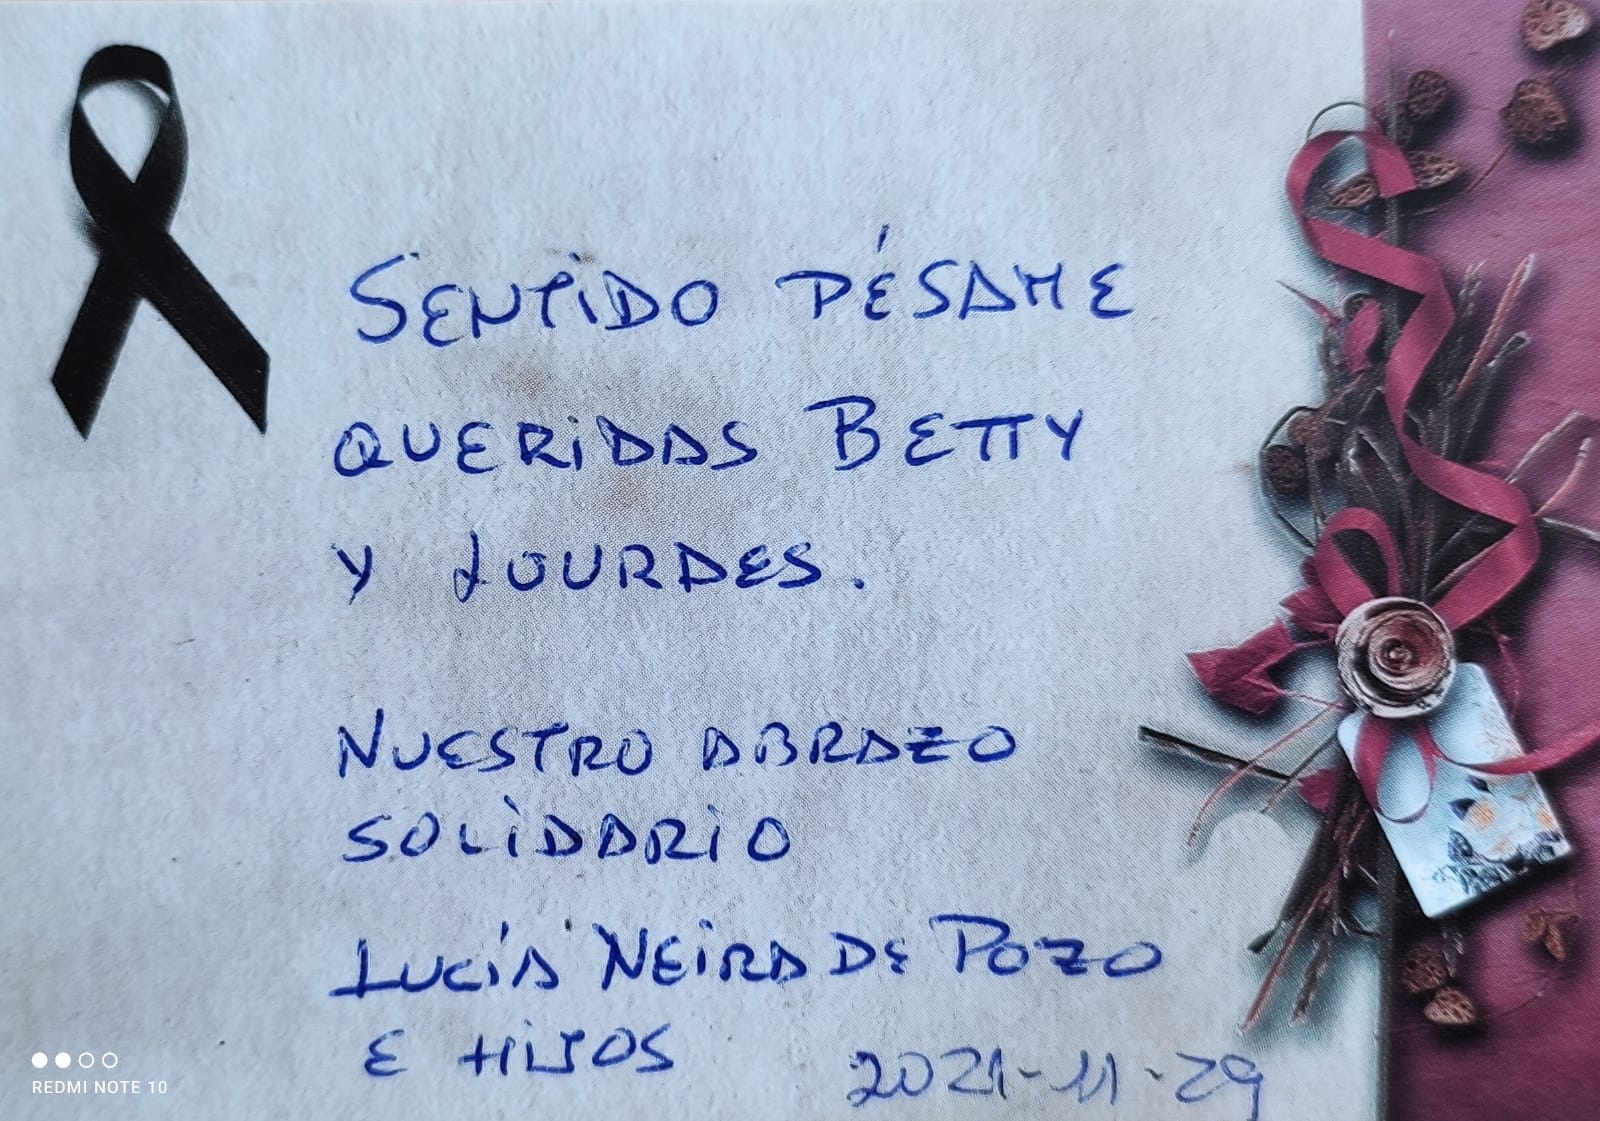 SENTIDO PÉSAME
QUERIDAS BETTY
Y LOURDES.
NUESTRO ABRAZO
SOLIDARIO
LUCÍA NEIRA DE POZO
E HIJOS
2021-11-29
REDMI NOTE 10